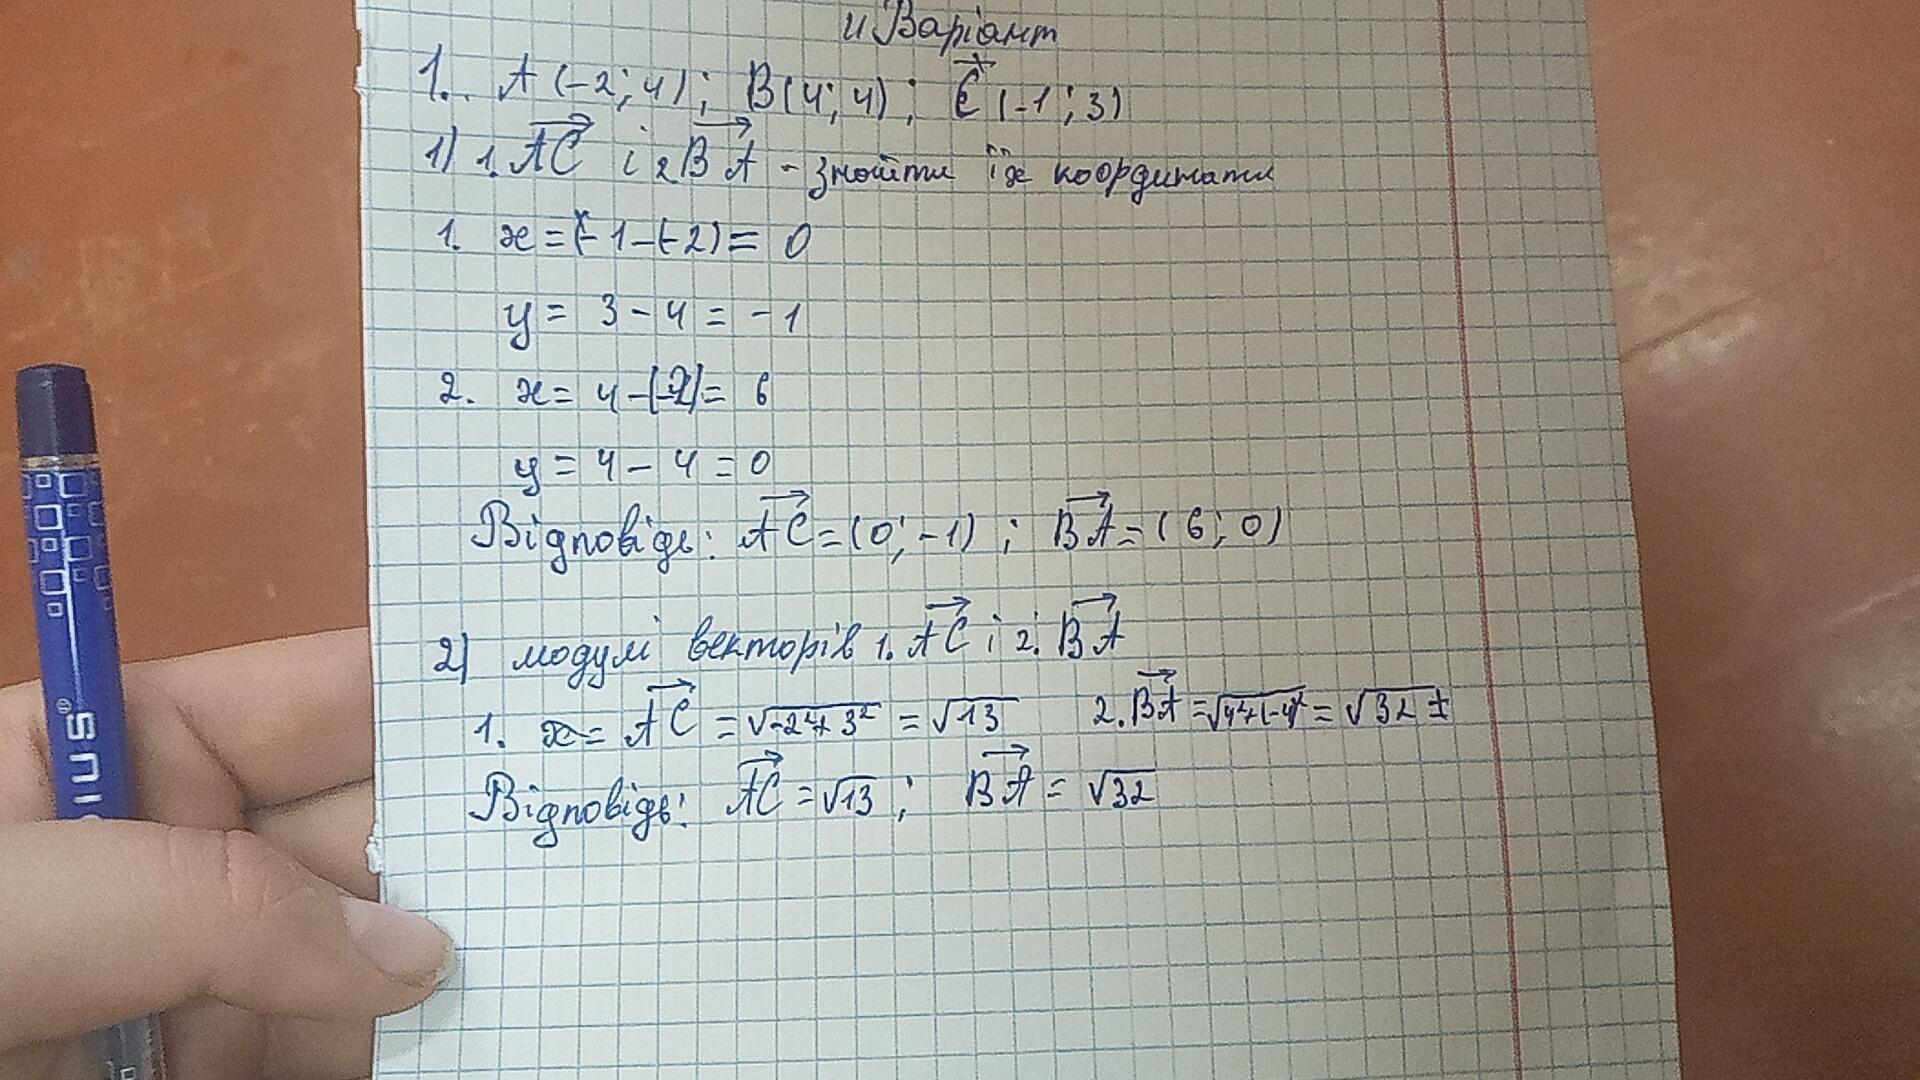 4 Варіант
1. A (-2; 4); B(4; 4); C (-1; 3)
1) 1. AC і 2 BA - знайти їх координати
1. x = (-1-(-2) = 0
y = 3 - 4 = -1
2. x = 4 -(-2)= 6
y = 4 - 4 = 0
Відповідь: AC = (0; -1) ; BA = (6; 0)
2) модулі векторів 1. AC і 2. BA
1. x = AC = √-2²+3² = √13 2. BA = √4²+(-4)² = √32 ±
Відповідь: AC = √13 ; BA = √32
IUS®